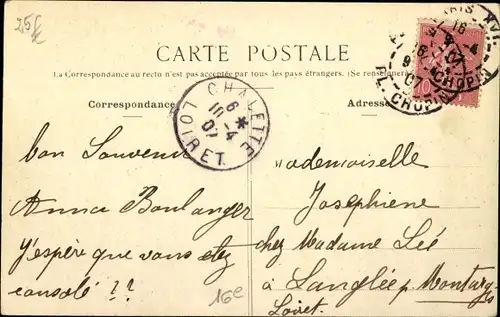 25€
CARTE POSTALE
La Correspondance au recto n'est pas acceptée par tous les pays étrangers. (Se renseigner
Correspondance
Adresse
PARIS XVI
16
9-4
07
PL. CHOPIN
10
CHALETTE
6 *
10-4
07
LOIRET
bon Souvenir
Anna Boulanger
J'espère que vous etez
consolé ??
Mademoiselle
Josephiene
chez Madame Lié
à Langlée p. Montargis
Loiret.
16€